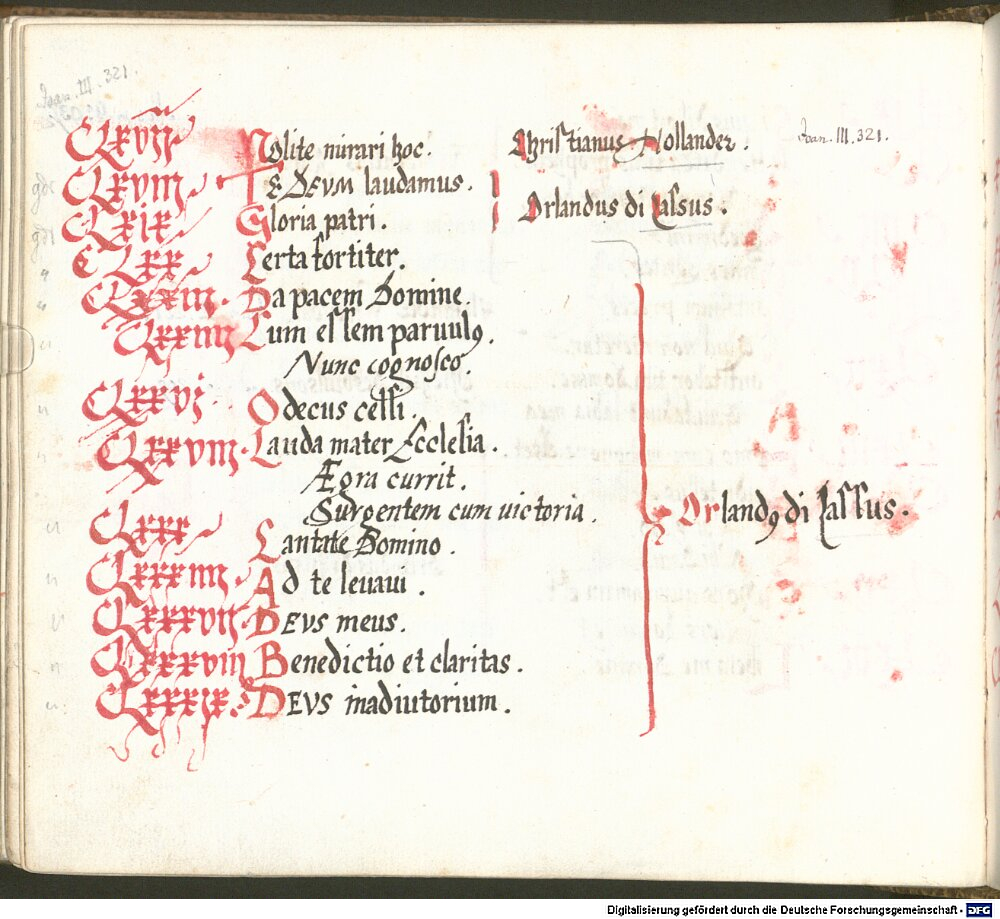 Joan. III. 321.
CLXVII Nolite mirari hoc. Christianus Hollander. Joan. III. 321.
CLXVIII TE DEVM laudamus.
CLXIX Gloria patri. Orlandus di Lassus.
CLXX Certa fortiter.
CLXXIII. Da pacem Domine.
CLXXIIII Cum essem paruulꝰ.
Nunc cognosco.
CLXXVI O decus celsi.
CLXXVIII. Lauda mater Ecclesia.
Ægra currit.
Surgentem cum uictoria.
Orlandꝰ di Lassus.
CLXXX Cantate Domino.
CLXXXIIII Ad te leuaui.
CLXXXVII. DEVS meus.
CLXXXVIII Benedictio et claritas.
CLXXXIX. DEVS inadiutorium.
Digitalisierung gefördert durch die Deutsche Forschungsgemeinschaft - DFG